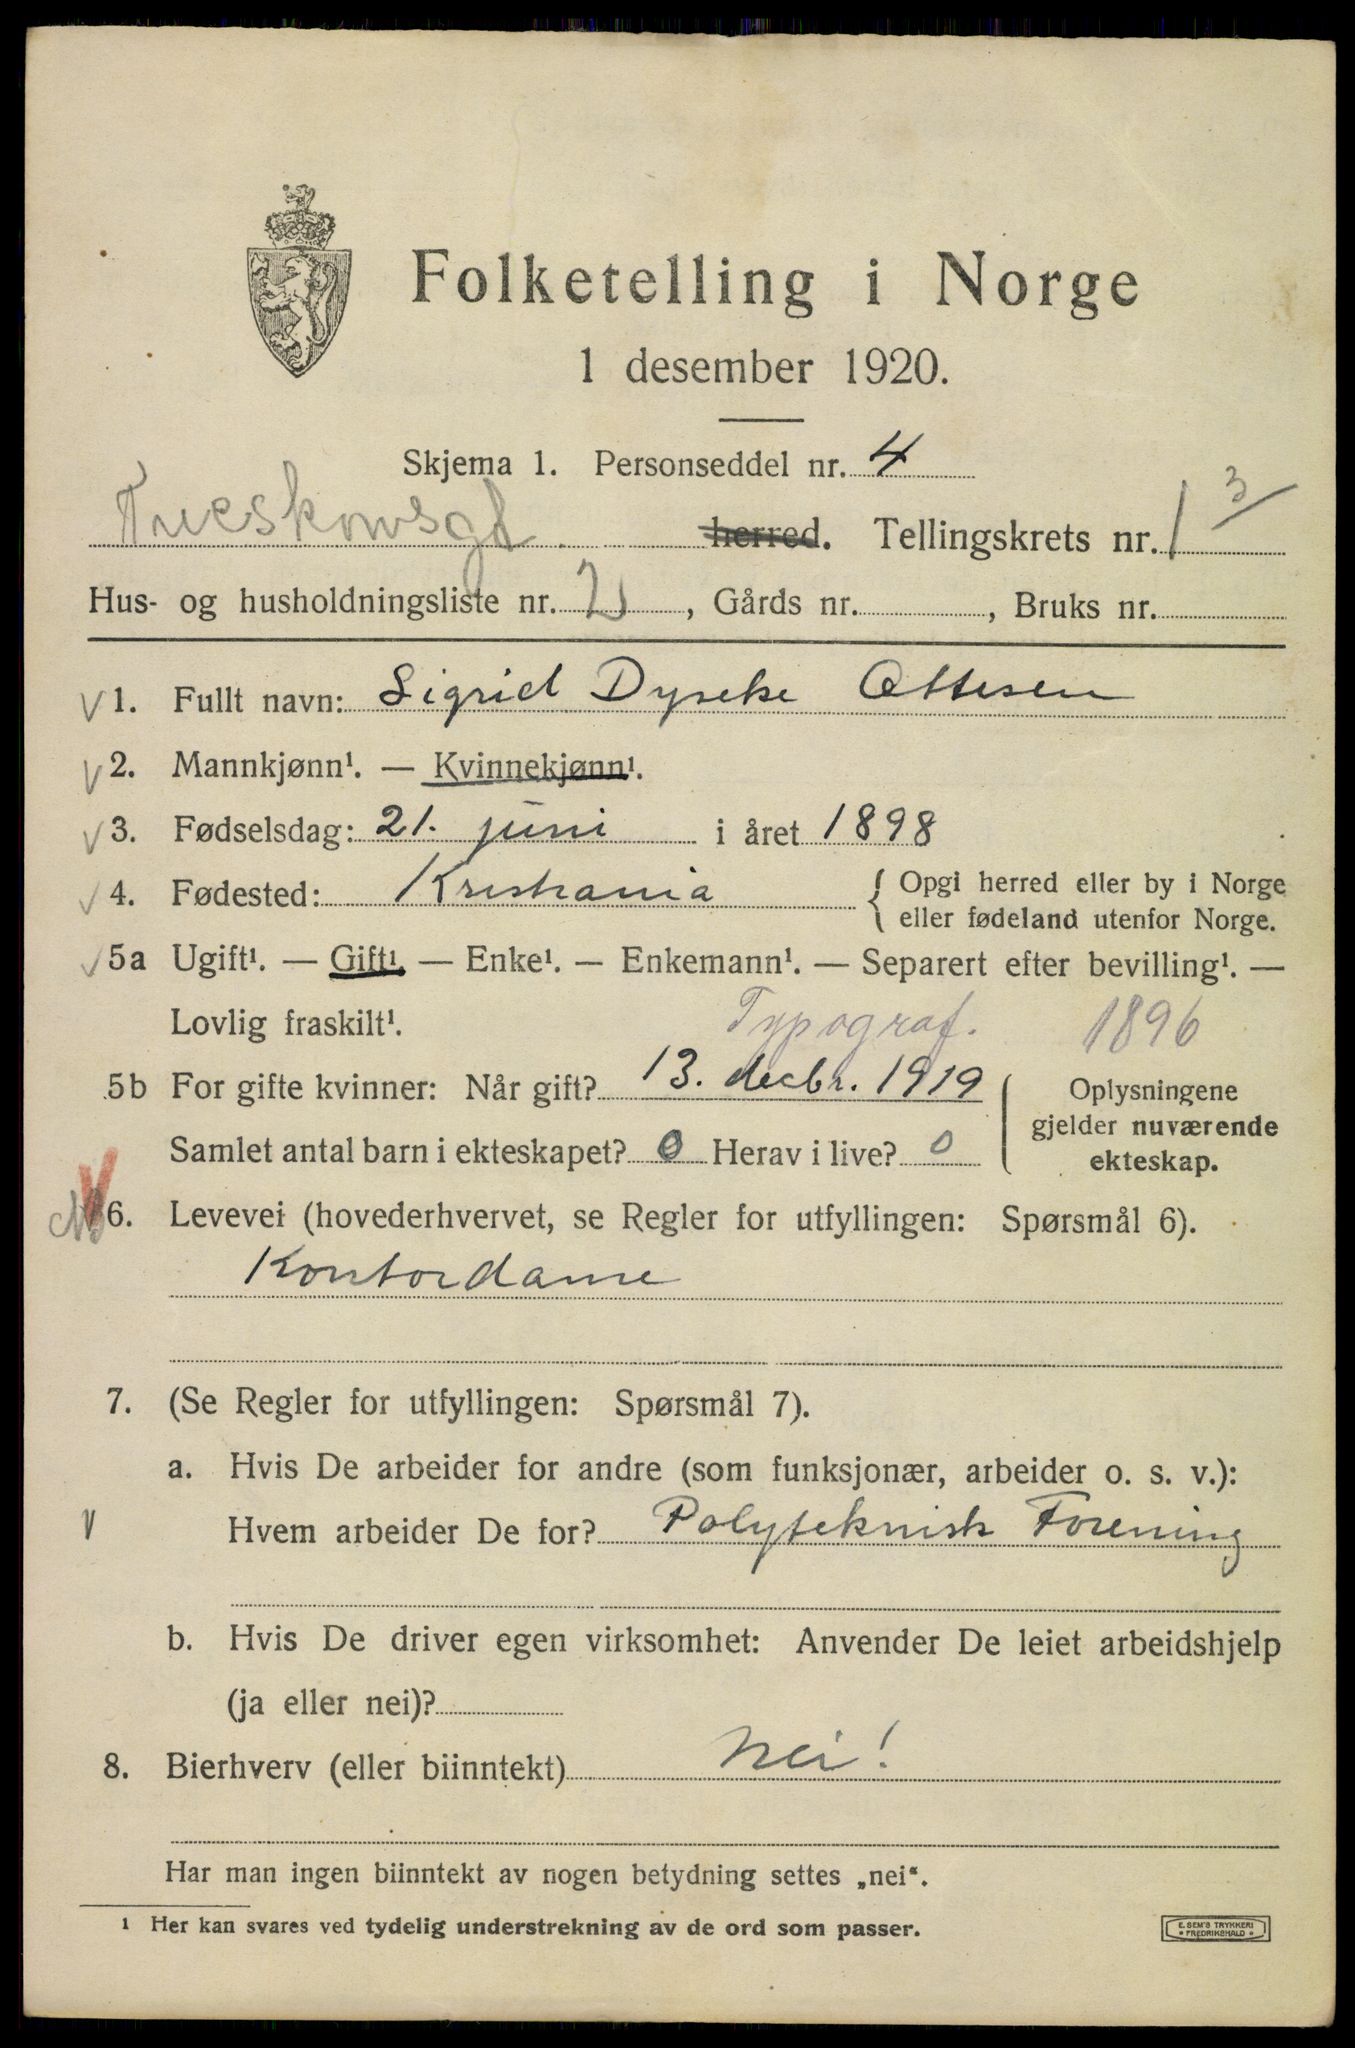 Folketelling i Norge
1 desember 1920.
Skjema 1. Personseddel nr. 4
Trueskowsgt herred. Tellingskrets nr. 1 3/
Hus- og husholdningsliste nr. 21, Gårds nr. , Bruks nr.
V 1. Fullt navn: Sigrid Dyseke Ottesen
V 2. Mannkjønn¹. — Kvinnekjønn¹.
V 3. Fødselsdag: 21. juni i året 1898
V 4. Fødested: Kristiania { Opgi herred eller by i Norge
eller fødeland utenfor Norge.
V 5a Ugift¹. — Gift¹. — Enke¹. — Enkemann¹. — Separert efter bevilling¹. —
Lovlig fraskilt¹. Typograf. 1896
5b For gifte kvinner: Når gift? 13. decbr. 1919
Samlet antal barn i ekteskapet? 0 Herav i live? 0
Oplysningene
gjelder nuværende
ekteskap.
V 6. Levevei (hovederhvervet, se Regler for utfyllingen: Spørsmål 6).
Kontordame
7. (Se Regler for utfyllingen: Spørsmål 7).
a. Hvis De arbeider for andre (som funksjonær, arbeider o. s. v.):
V Hvem arbeider De for? Polyteknisk Forening
b. Hvis De driver egen virksomhet: Anvender De leiet arbeidshjelp
(ja eller nei)?
8. Bierhverv (eller biinntekt) Nei!
Har man ingen biinntekt av nogen betydning settes „nei“.
¹ Her kan svares ved tydelig understrekning av de ord som passer.
E. SEM'S TRYKKERI
• FREDRIKSHALD •